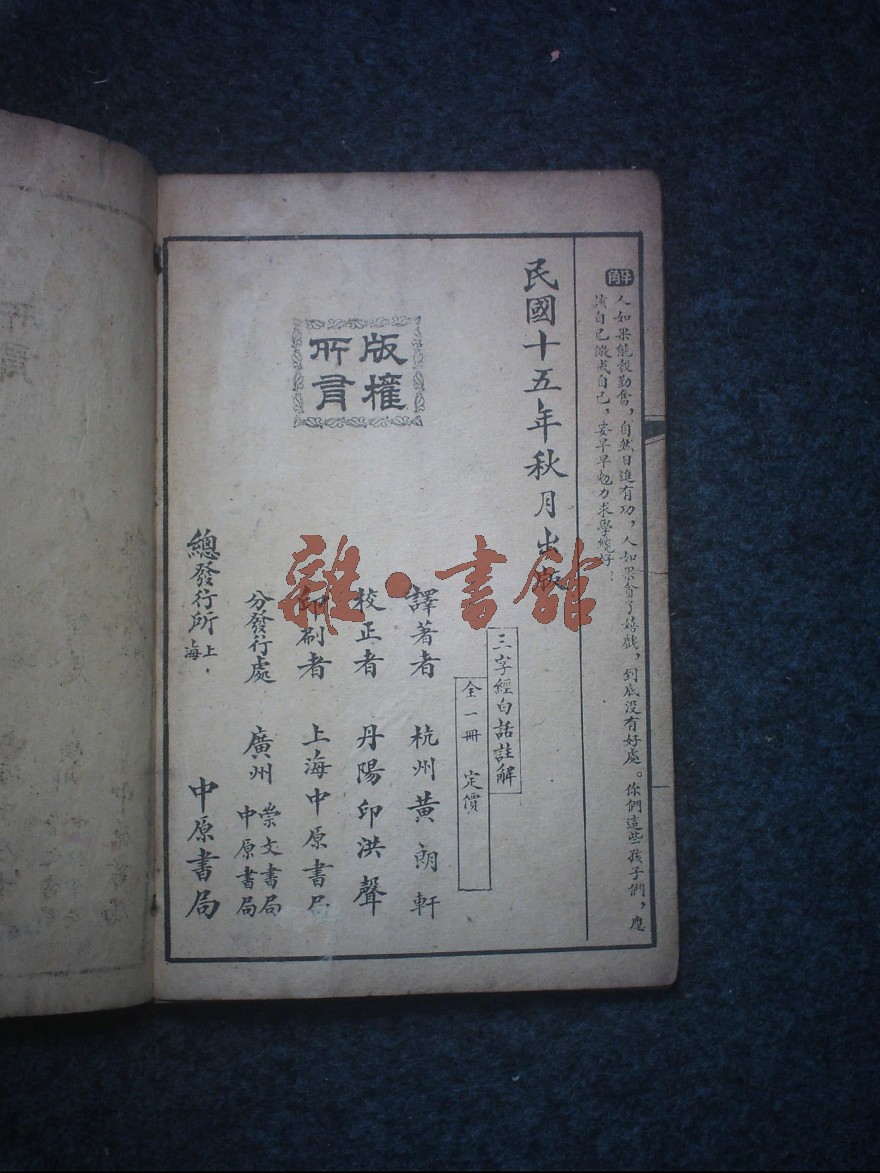 解
人如果能彀勤奮，自然日進有功，人如果貪了嬉戲，到底没有好處。你們這些孩子們，應
該自己儆戒自己，要早早勉力求學纔好！
民國十五年秋月出版
三字經白話註解
全一冊 定價
版權
所有
譯著者 杭州黃朗軒
校正者 丹陽印洪聲
印刷者 上海中原書局
分發行處 廣州 崇文書局
中原書局
總發行所 上海 中原書局
雜·書館